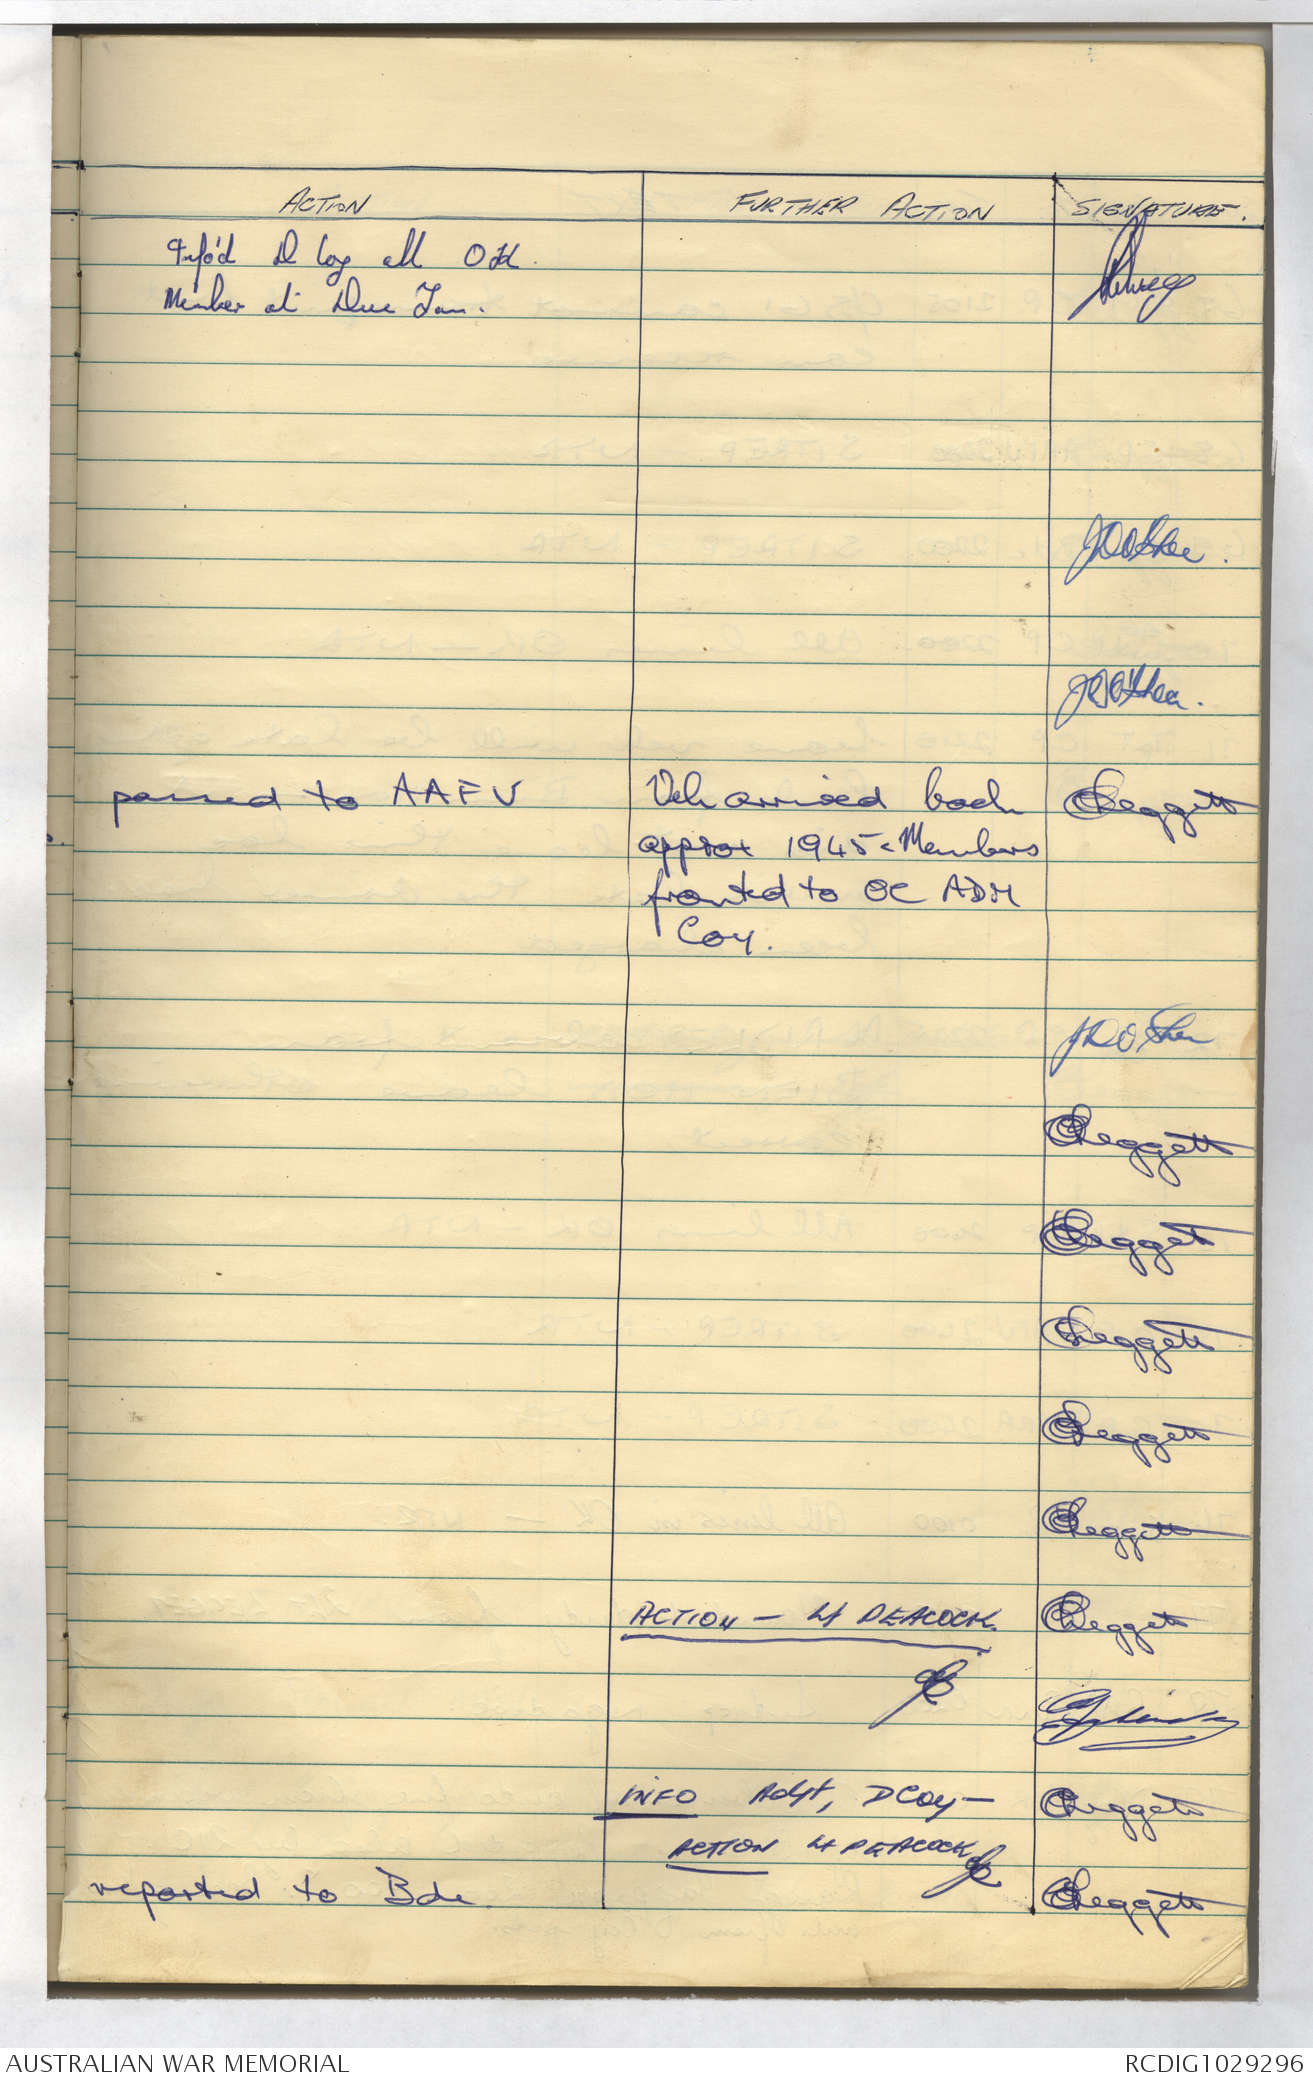 ACTION FURTHER ACTION SIGNATURE.
Info'd D Coy all OK.
Member at Duc Tan.
JDO'Shea.
JDO'Shea.
passed to AAFV Veh arrived back CLeggett
approx 1945 - Members
fronted to OC ADM
Coy.
JDO'Shea
CLeggett
CLeggett
CLeggett
CLeggett
CLeggett
ACTION - Lt PEACOCK. CLeggett
INFO Adjt, D Coy - CLeggett
ACTION Lt PEACOCK
reported to Bde. CLeggett
AUSTRALIAN WAR MEMORIAL RCDIG1029296